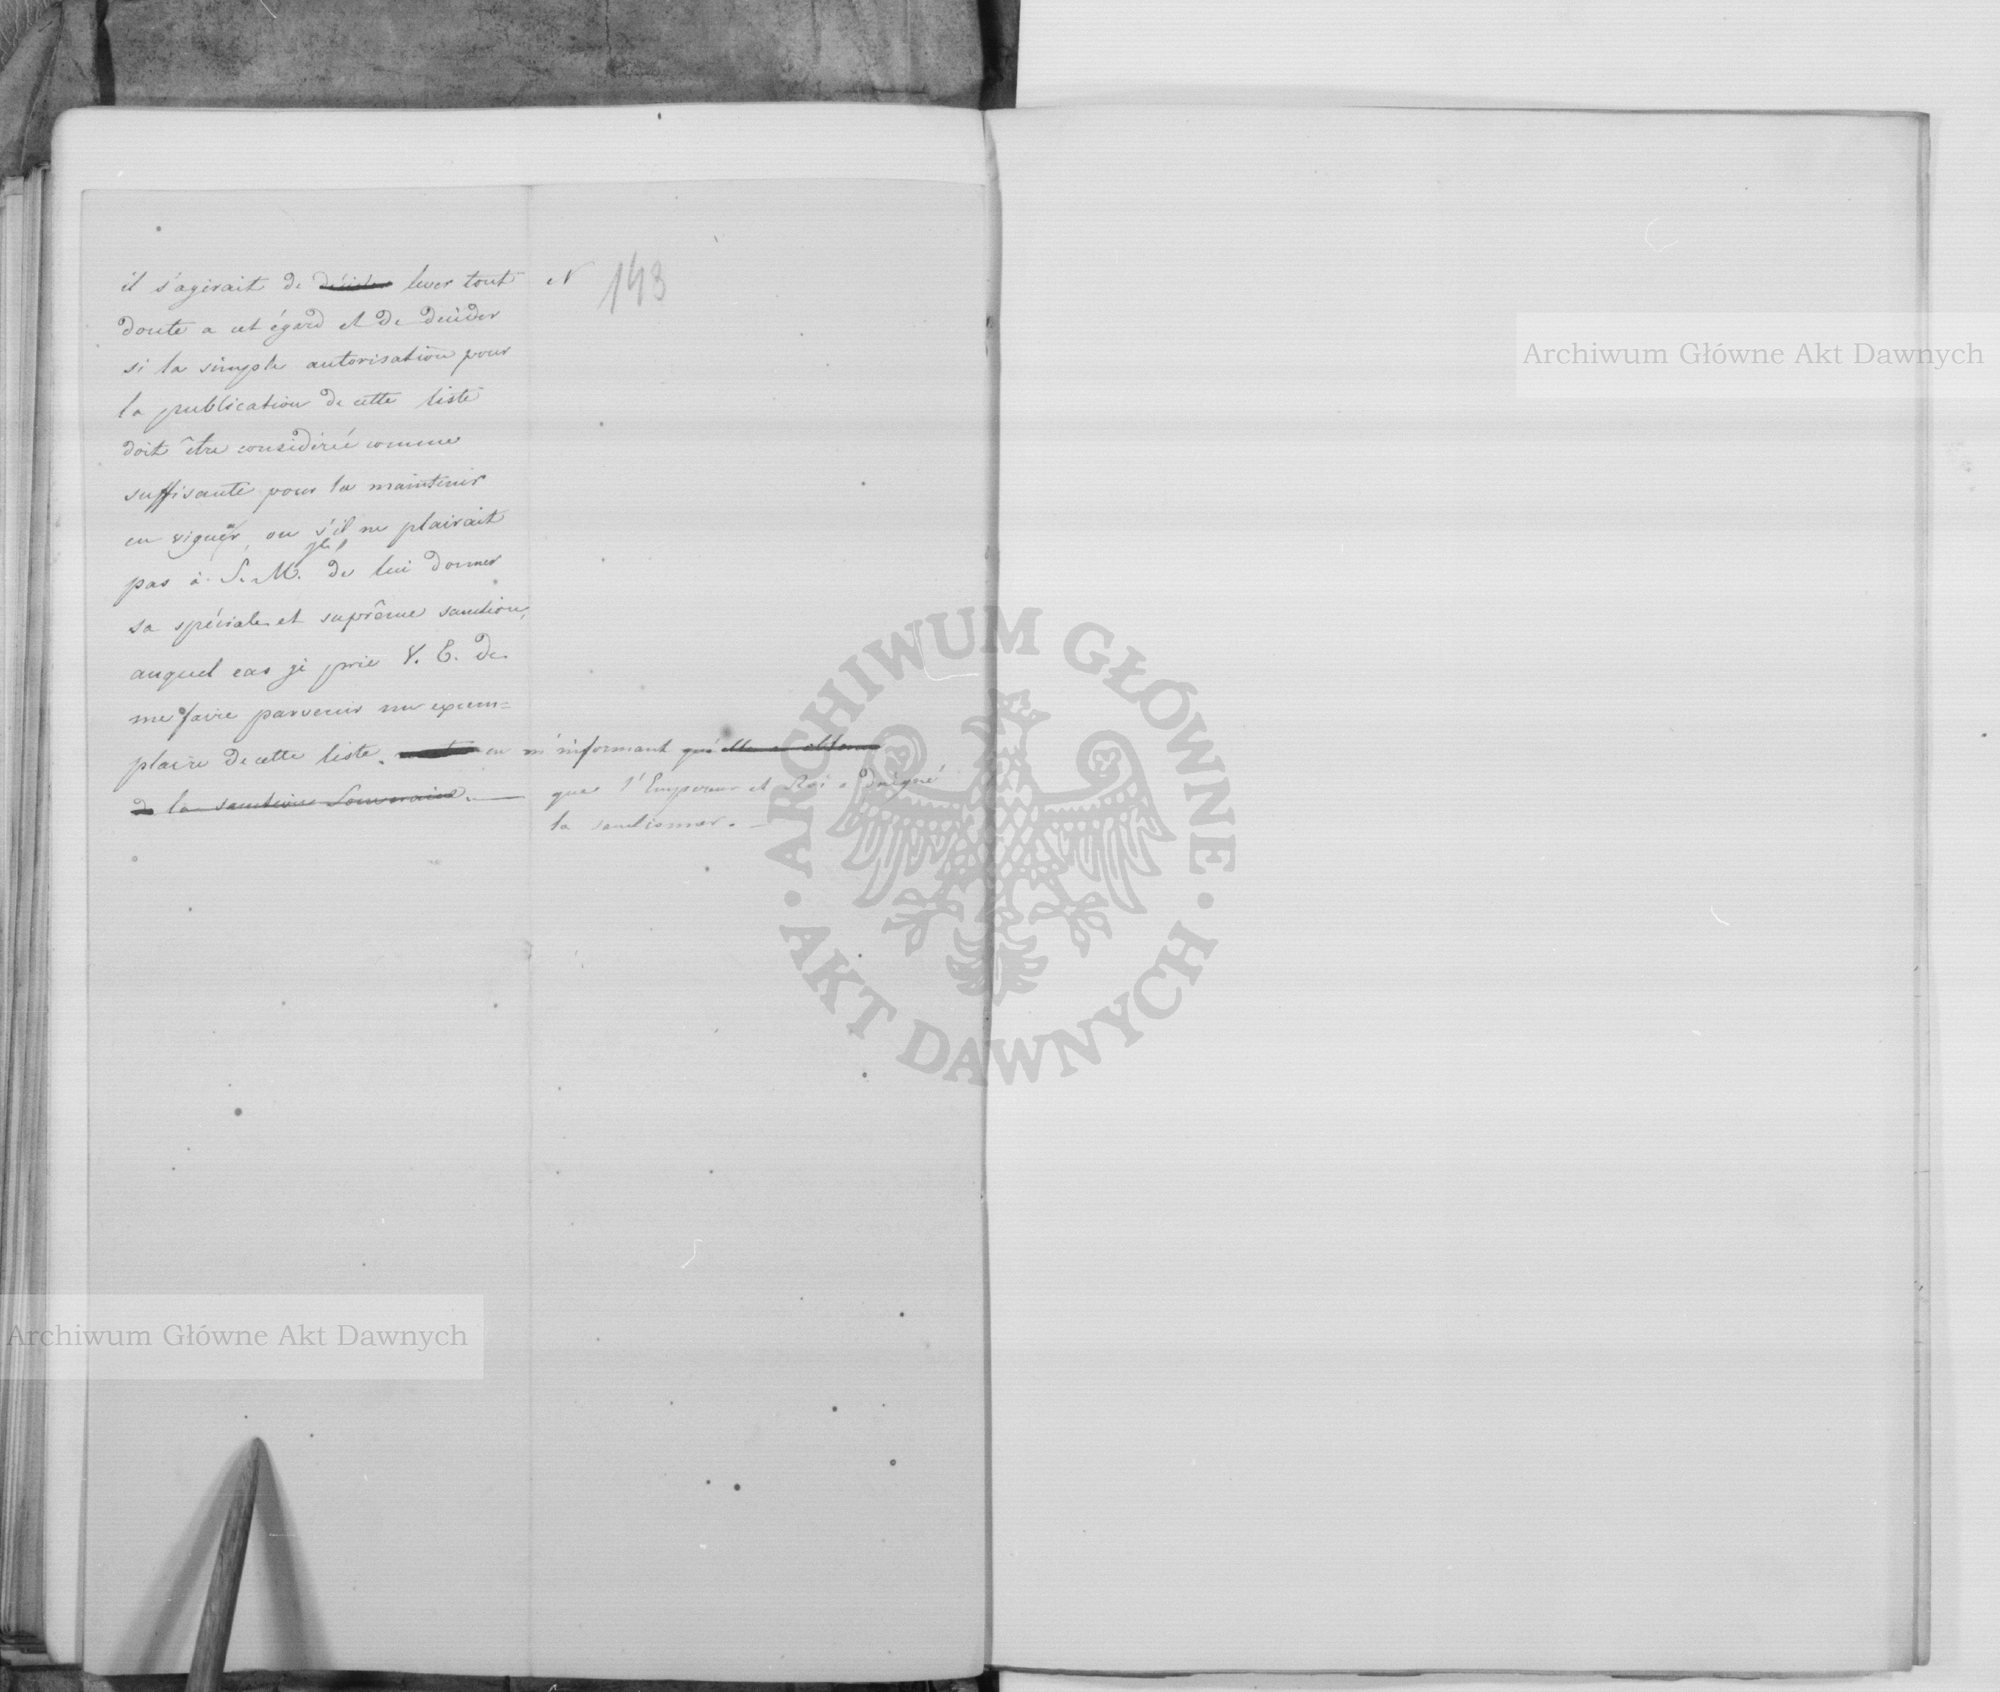 il s'agirait de décider lever tout
doute a cet égard et de decider
si la simple autorisation pour
la publication de cette liste
doit être considirée comme
suffisante pour la maintenir
en viguer, ou s'il ne plairait
pas à S. M. de lui donner
sa spéciale et suprême sanction,
auquel cas je prie V. E. de
me faire parvenir un exem=
plaire de cette liste, en m'informant qu'elle a obtenu
de la sanction Souveraine. —
que l'Empereur et Roi a daigné
la sanctionner. —
N 143
Archiwum Główne Akt Dawnych
ARCHIWUM GŁÓWNE
AKT DAWNYCH
Archiwum Główne Akt Dawnych